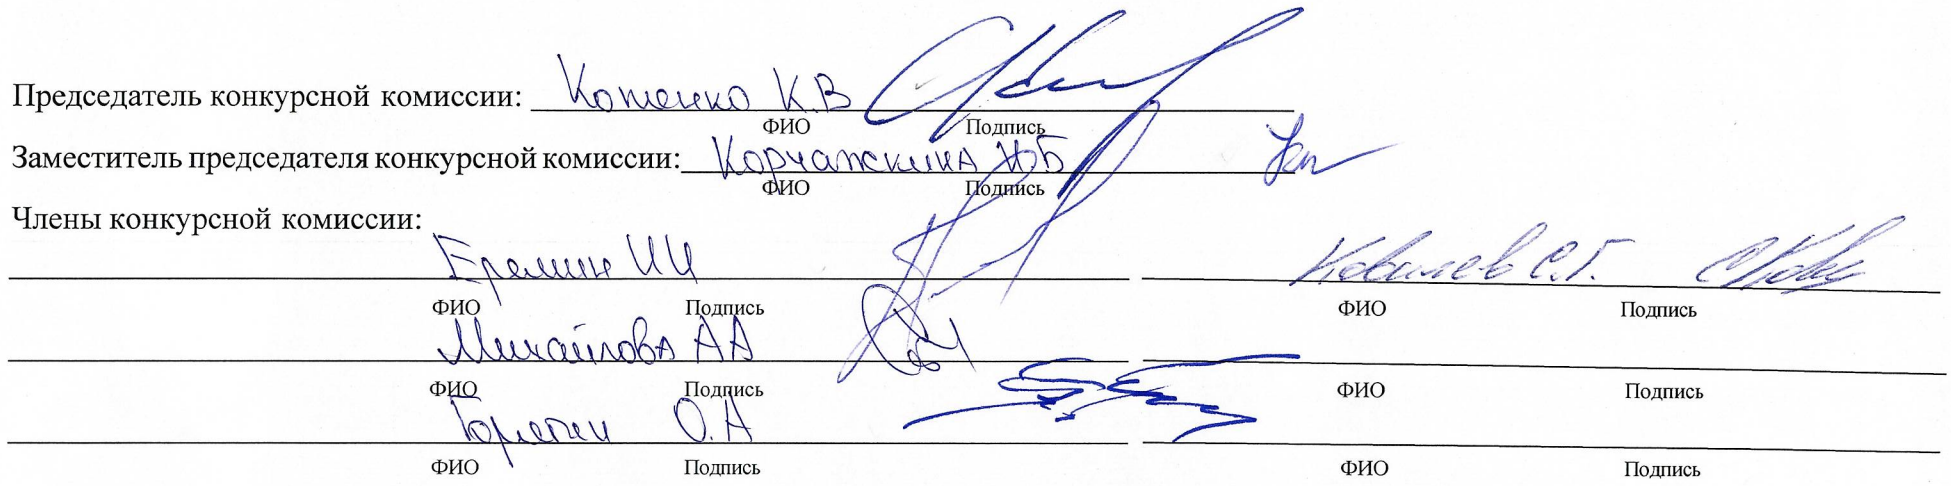 Председатель конкурсной комиссии: Котенко К.В
ФИО Подпись
Заместитель председателя конкурсной комиссии: Корчажкина Н.Б
ФИО Подпись
Члены конкурсной комиссии:
Еремин И И Ковалев С.Г.
ФИО Подпись ФИО Подпись
Михайлова А А
ФИО Подпись ФИО Подпись
О.А
ФИО Подпись ФИО Подпись